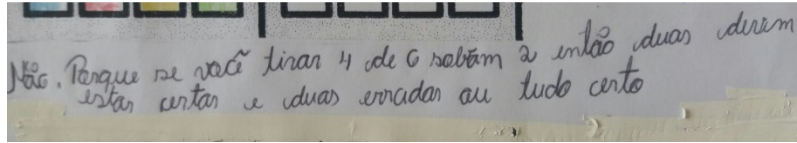 Não. Porque se você tirar 4 de 6 sobam 2 então duas derem
estar certas e duas erradas ou tudo certo